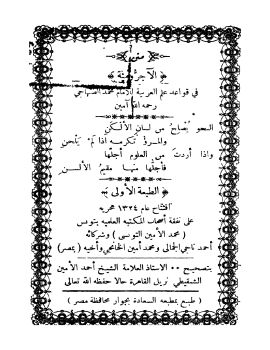 متن
﴿ الآجرومية ﴾
في قواعد علم العربية للامام محمد الصنهاجي
رحمه الله آمين
النحو يصلح من لسان الألكن
والمرء تكرمه اذا لم يلحن
واذا أردت من العلوم أجلها
فأجلها منها مقيم الألسن
﴿ الطبعة الأولى ﴾
افتتاح عام ١٣٢٤ هجريه
على نفقة أصحاب المكتبه العلميه بتونس
( محمد الأمين التونسى ) وشركائه
أحمد ناجي الجمالى ومحمد أمين الخانجي وأخيه ( بمصر )
بتصحيح ٠٠ الاستاذ العلامة الشيخ أحمد الأمين
الشنقيطي نزيل القاهرة حالا حفظه الله تعالى
( طبع بمطبعه السعادة بجوار محافظة مصر )